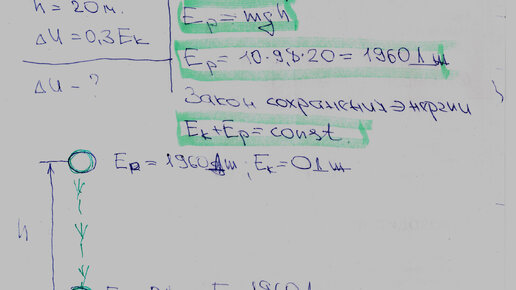 h = 20 м.
ΔU = 0,3Eк
ΔU - ?
Ep = mgh
Ep = 10·9,8·20 = 1960 Дж
Закон сохранения энергии
Eк + Ep = const.
Ep = 1960 Дж; Eк = 0 Дж
h